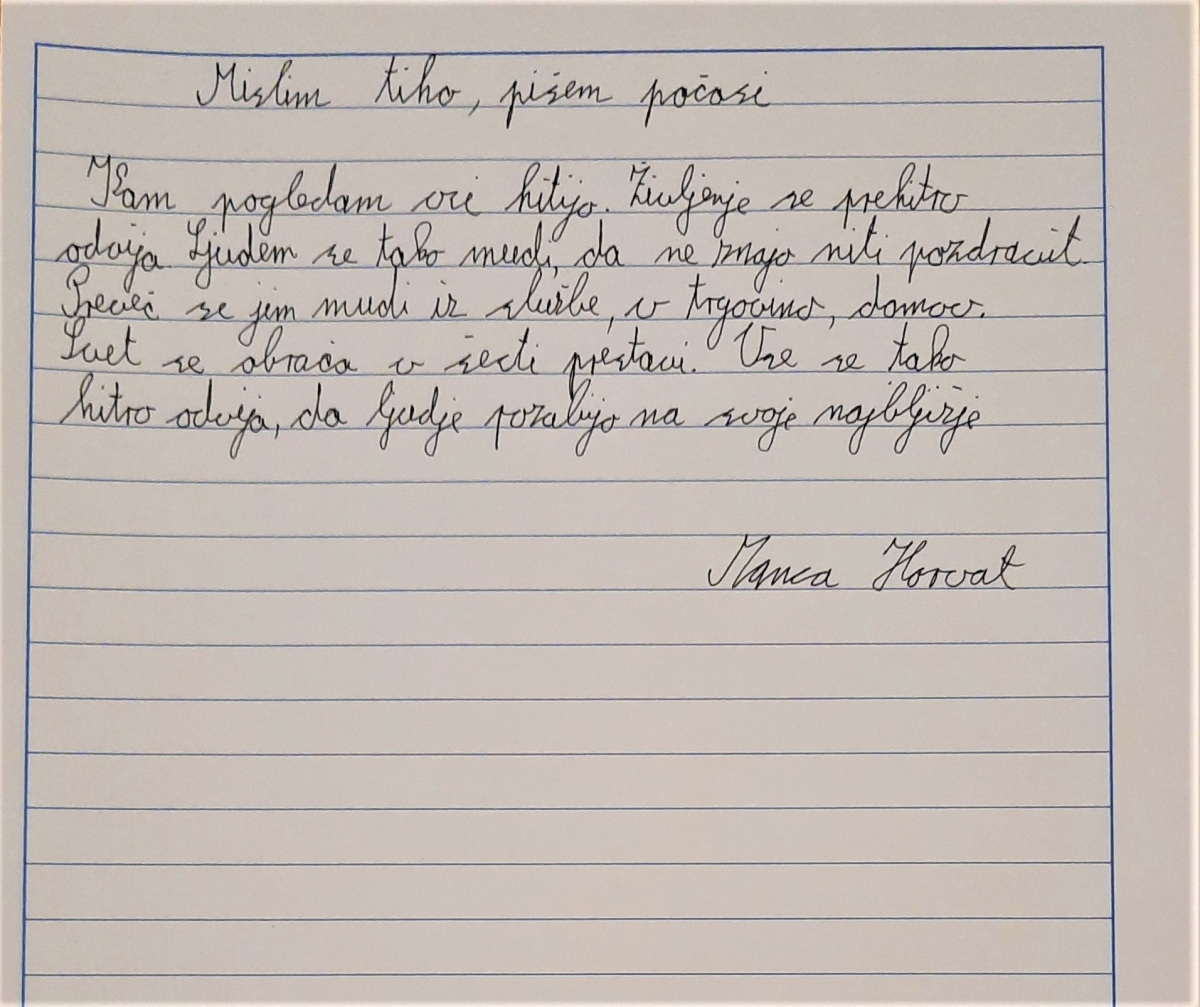 Mislim tiho, pišem počasi
Kam pogledam vsi hitijo. Življenje se prehitro
odvija. Ljudem se tako mudi, da ne znajo niti pozdravit.
Preveč se jim mudi iz službe, v trgovino, domov.
Svet se obrača v šesti prestavi. Vse se tako
hitro odvija, da ljudje pozabijo na svoje najbljižje
Manca Horvat